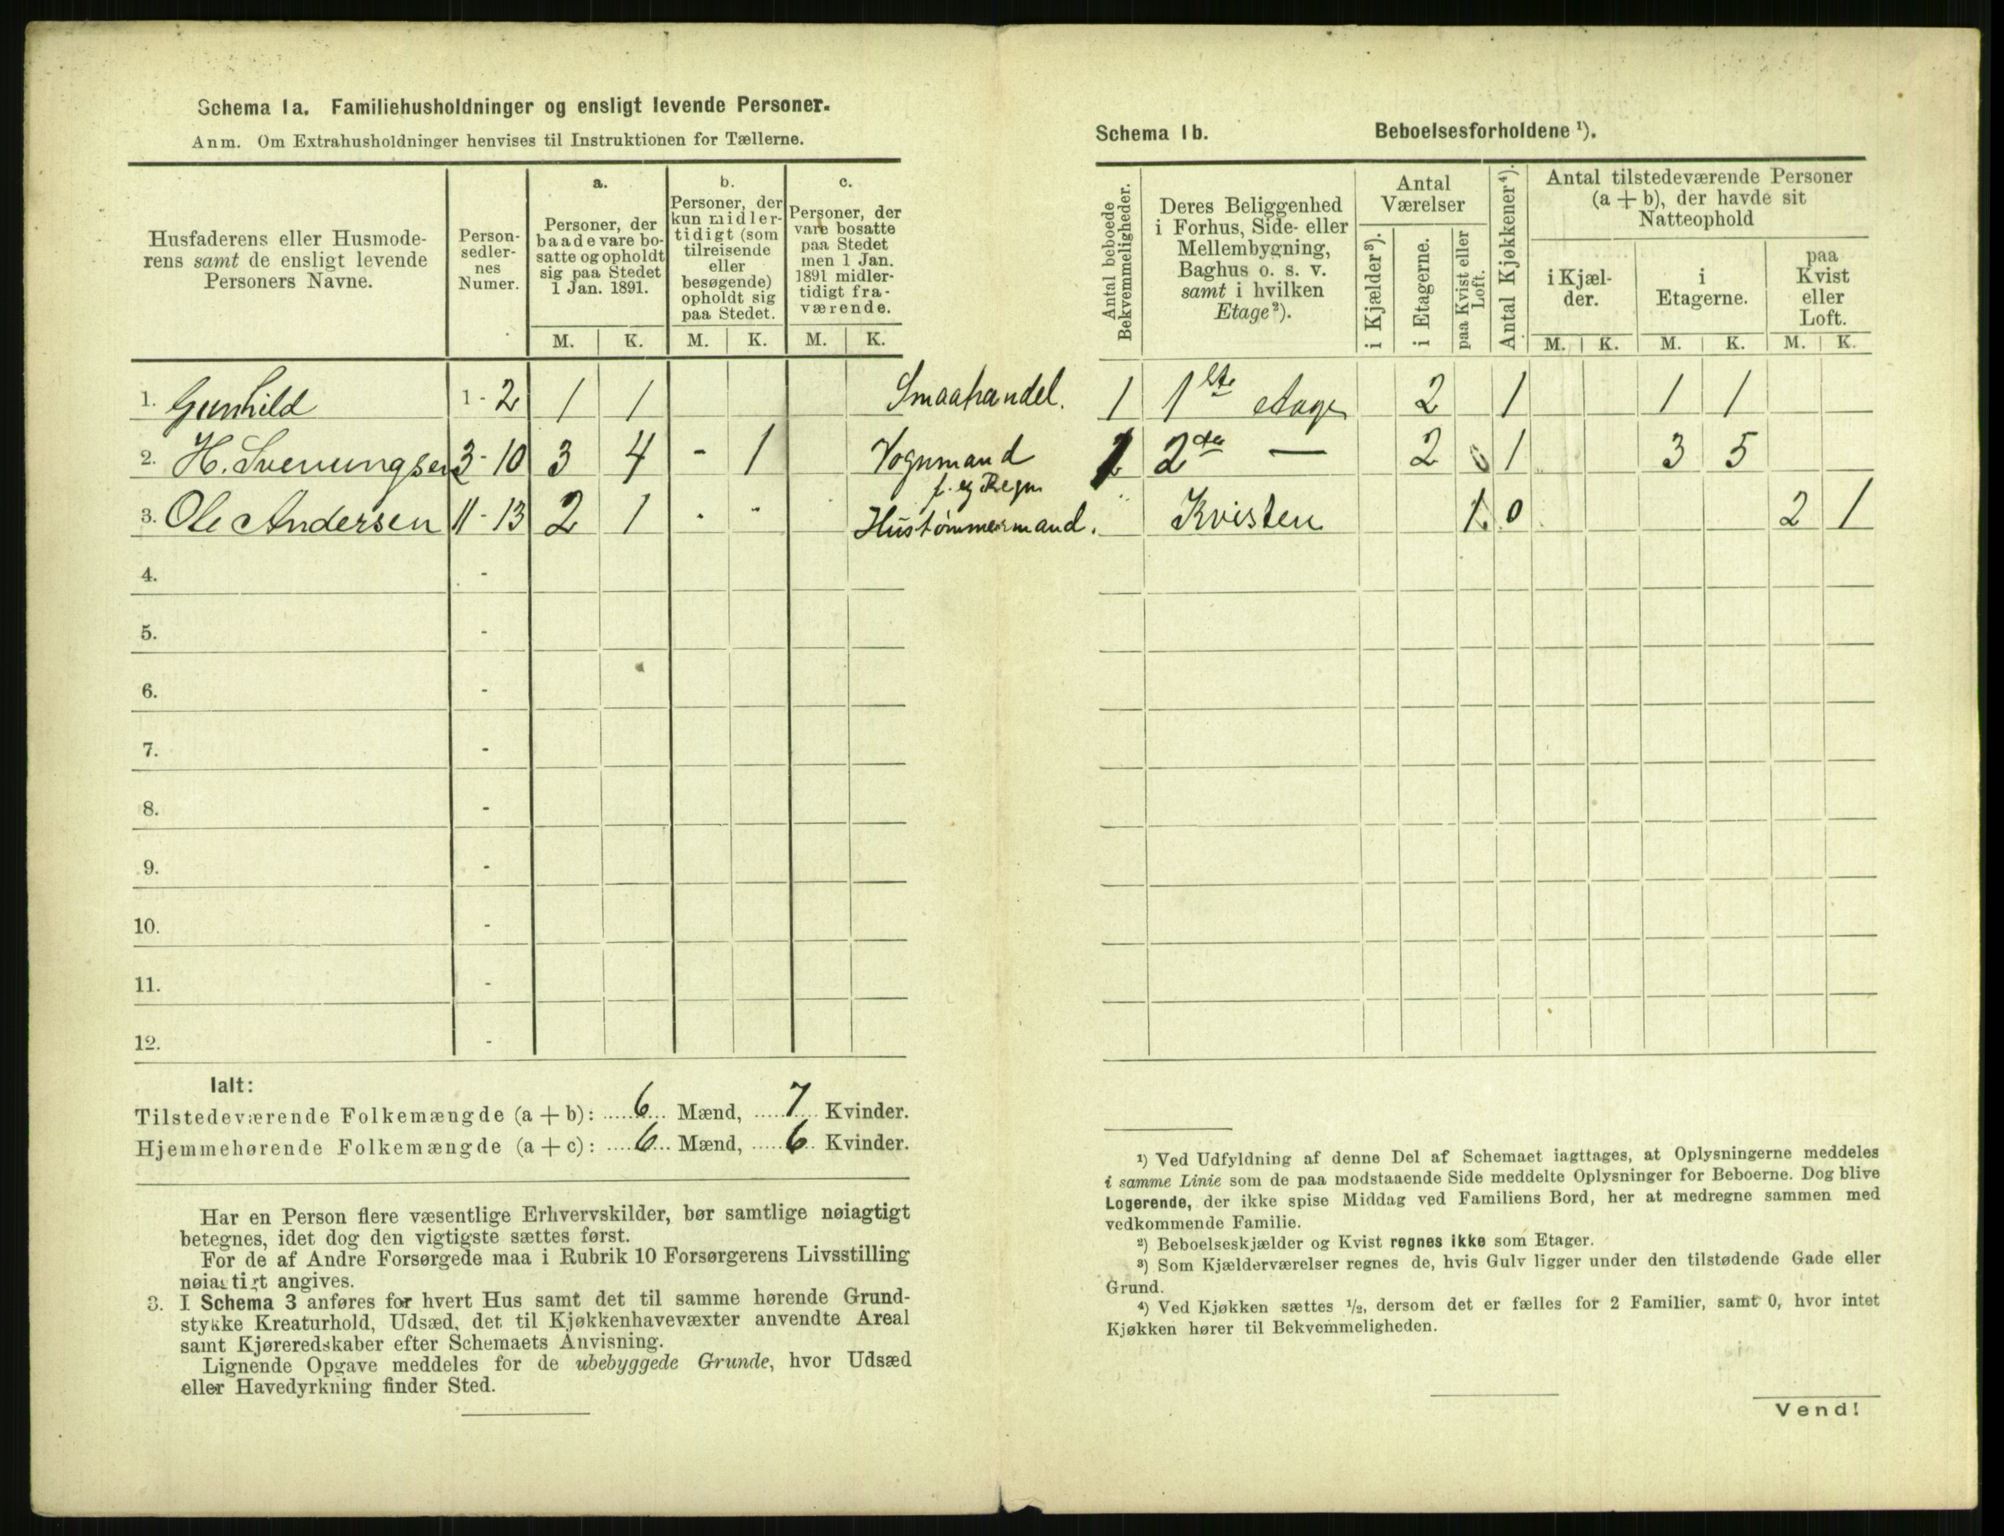 Schema 1a. Familiehusholdninger og ensligt levende Personer.
Anm. Om Extrahusholdninger henvises til Instruktionen for Tællerne.
Husfaderens eller Husmode-
rens samt de ensligt levende
Personers Navne.
Person-
sedler-
nes
Numer.
a.
Personer, der
baade vare bo-
satte og opholdt
sig paa Stedet
1 Jan. 1891.
b.
Personer, der
kun midler-
tidigt (som
tilreisende
eller
besøgende)
opholdt sig
paa Stedet.
c.
Personer, der
vare bosatte
paa Stedet
men 1 Jan.
1891 midler-
tidigt fra-
værende.
M. K. M. K. M. K.
1. Gunhild 1 - 2 1 1 Smaahandel.
2. H. Svenungsen 3 - 10 3 4 - 1 Vognmand
f. eg Regn
3. Ole Andersen 11 - 13 2 1 - - Hustømmermand.
4. -
5. -
6. -
7. -
8. -
9. -
10. -
11. -
12. -
Ialt:
Tilstedeværende Folkemængde (a + b): 6 Mænd, 7 Kvinder.
Hjemmehørende Folkemængde (a + c): 6 Mænd, 6 Kvinder.
Har en Person flere væsentlige Erhvervskilder, bør samtlige nøiagtigt
betegnes, idet dog den vigtigste sættes først.
For de af Andre Forsørgede maa i Rubrik 10 Forsørgerens Livsstilling
nøiagtigt angives.
3. I Schema 3 anføres for hvert Hus samt det til samme hørende Grund-
stykke Kreaturhold, Udsæd, det til Kjøkkenhavevæxter anvendte Areal
samt Kjøreredskaber efter Schemaets Anvisning.
Lignende Opgave meddeles for de ubebyggede Grunde, hvor Udsæd
eller Havedyrkning finder Sted.
Schema 1b. Beboelsesforholdene ¹).
Antal beboede
Bekvemmeligheder.
Deres Beliggenhed
i Forhus, Side- eller
Mellembygning,
Baghus o. s. v.
samt i hvilken
Etage²).
Antal
Værelser
i Kjælder³).
i Etagerne.
paa Kvist eller
Loft.
Antal Kjøkkener⁴).
Antal tilstedeværende Personer
(a + b), der havde sit
Natteophold
i Kjæl-
der.
i
Etagerne.
paa
Kvist
eller
Loft.
M. K. M. K. M. K.
1 1ste Etage 2 1 1 1
2de — 2 0 1 3 5
" Kvisten 1 0 2 1
¹) Ved Udfyldning af denne Del af Schemaet iagttages, at Oplysningerne meddeles
i samme Linie som de paa modstaaende Side meddelte Oplysninger for Beboerne. Dog blive
Logerende, der ikke spise Middag ved Familiens Bord, her at medregne sammen med
vedkommende Familie.
²) Beboelseskjælder og Kvist regnes ikke som Etager.
³) Som Kjælderværelser regnes de, hvis Gulv ligger under den tilstødende Gade eller
Grund.
⁴) Ved Kjøkken sættes ½, dersom det er fælles for 2 Familier, samt 0, hvor intet
Kjøkken hører til Bekvemmeligheden.
Vend!